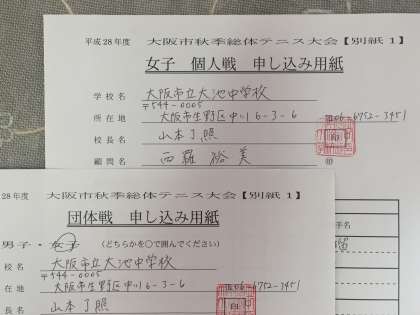 平成28年度 大阪市秋季総体テニス大会【別紙1】
女子 個人戦 申し込み用紙
学校名 大阪市立大池中学校
〒544-0005
所在地 大阪市生野区中川6-3-6 06-6752-3451
校長名 山本了照
顧問名 西羅裕美 印
28年度 大阪市秋季総体テニス大会【別紙1】
団体戦 申し込み用紙
男子・女子 (どちらかを○で囲んでください)
校名 大阪市立大池中学校
〒544-0005
在地 大阪市生野区中川6-3-6 06-6752-3451
長名 山本了照 印
手名